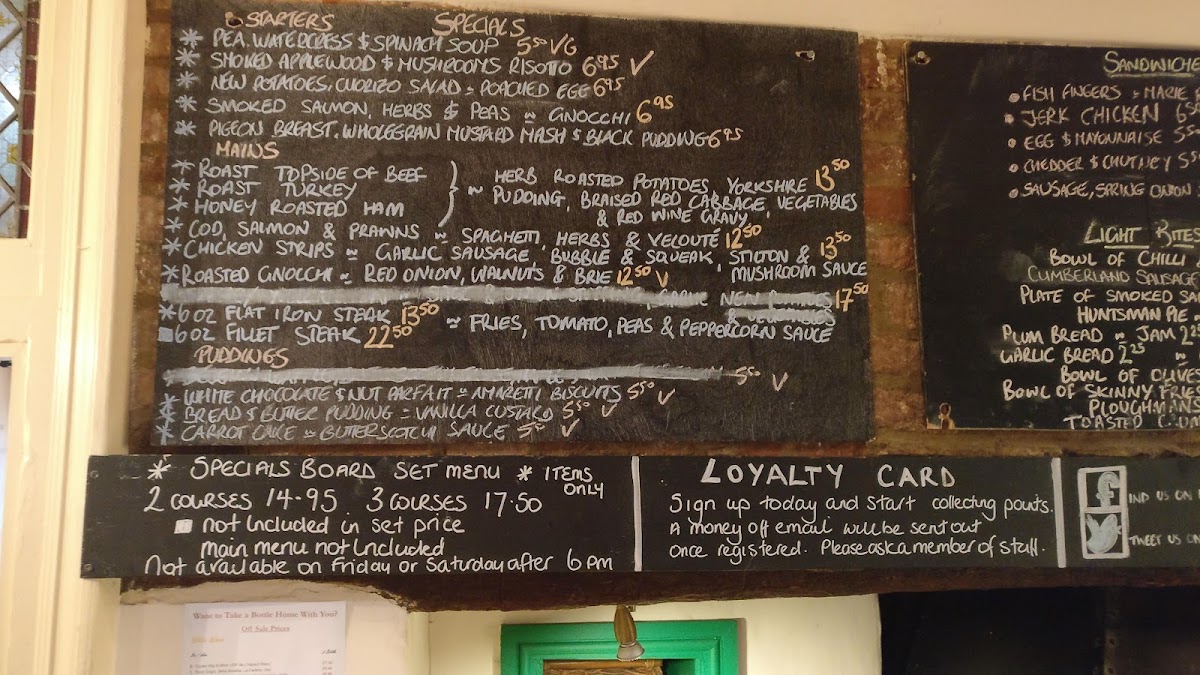 STARTERS SPECIALS
* PEA. WATERCRESS & SPINACH SOUP 5.50 VG
* SMOKED APPLEWOOD & MUSHROOMS RISOTTO 6.95 V
* NEW POTATOES, CHORIZO SALAD ~ POACHED EGG 6.95
* SMOKED SALMON, HERBS & PEAS ~ GNOCCHI 6.95
* PIGEON BREAST. WHOLEGRAIN MUSTARD MASH & BLACK PUDDING 6.95
MAINS
* ROAST TOPSIDE OF BEEF
* ROAST TURKEY
* HONEY ROASTED HAM
~ HERB ROASTED POTATOES, YORKSHIRE 13.50
PUDDING, BRAISED RED CABBAGE, VEGETABLES
& RED WINE GRAVY
* COD, SALMON & PRAWNS ~ SPAGHETTI, HERBS & VELOUTÉ 12.50
* CHICKEN STRIPS ~ GARLIC SAUSAGE, BUBBLE & SQUEAK, STILTON & 13.50
MUSHROOM SAUCE
* ROASTED GNOCCHI ~ RED ONION, WALNUTS & BRIE 12.50 V
NEW 17.50
* 6 OZ FLAT IRON STEAK 13.50
6 OZ FILLET STEAK 22.50
~ FRIES, TOMATO, PEAS & PEPPERCORN SAUCE
PUDDINGS
5.50 V
* WHITE CHOCOLATE & NUT PARFAIT ~ AMARETTI BISCUITS 5.50 V
* BREAD & BUTTER PUDDING ~ VANILLA CUSTARD 5.50 V
* CARROT CAKE ~ BUTTERSCOTCH SAUCE 5.50 V
SANDWICHE
FISH FINGERS ~ MARIE
JERK CHICKEN 6
EGG & MAYONNAISE 5.5
CHEDDER & CHUTNEY 5.5
SAUSAGE, SPRING ONION
LIGHT BITES
BOWL OF CHILLI
CUMBERLAND SAUSAGE
PLATE OF SMOKED SA
HUNTSMAN PIE
PLUM BREAD ~ JAM 2.25
GARLIC BREAD 2.25 ~
BOWL OF OLIVES
BOWL OF SKINNY FRIES
PLOUGHMANS
TOASTED
* SPECIALS BOARD SET MENU * ITEMS
ONLY
2 COURSES 14.95. 3 COURSES 17.50
not Included in set price
main menu not Included
Not available on Friday or Saturday after 6pm
LOYALTY CARD
Sign up today and start collecting points.
A money off email will be sent out
once registered. Please ask a member of staff.
IND US ON
TWEET US ON
Want to Take a Bottle Home With You?
Off Sale Prices